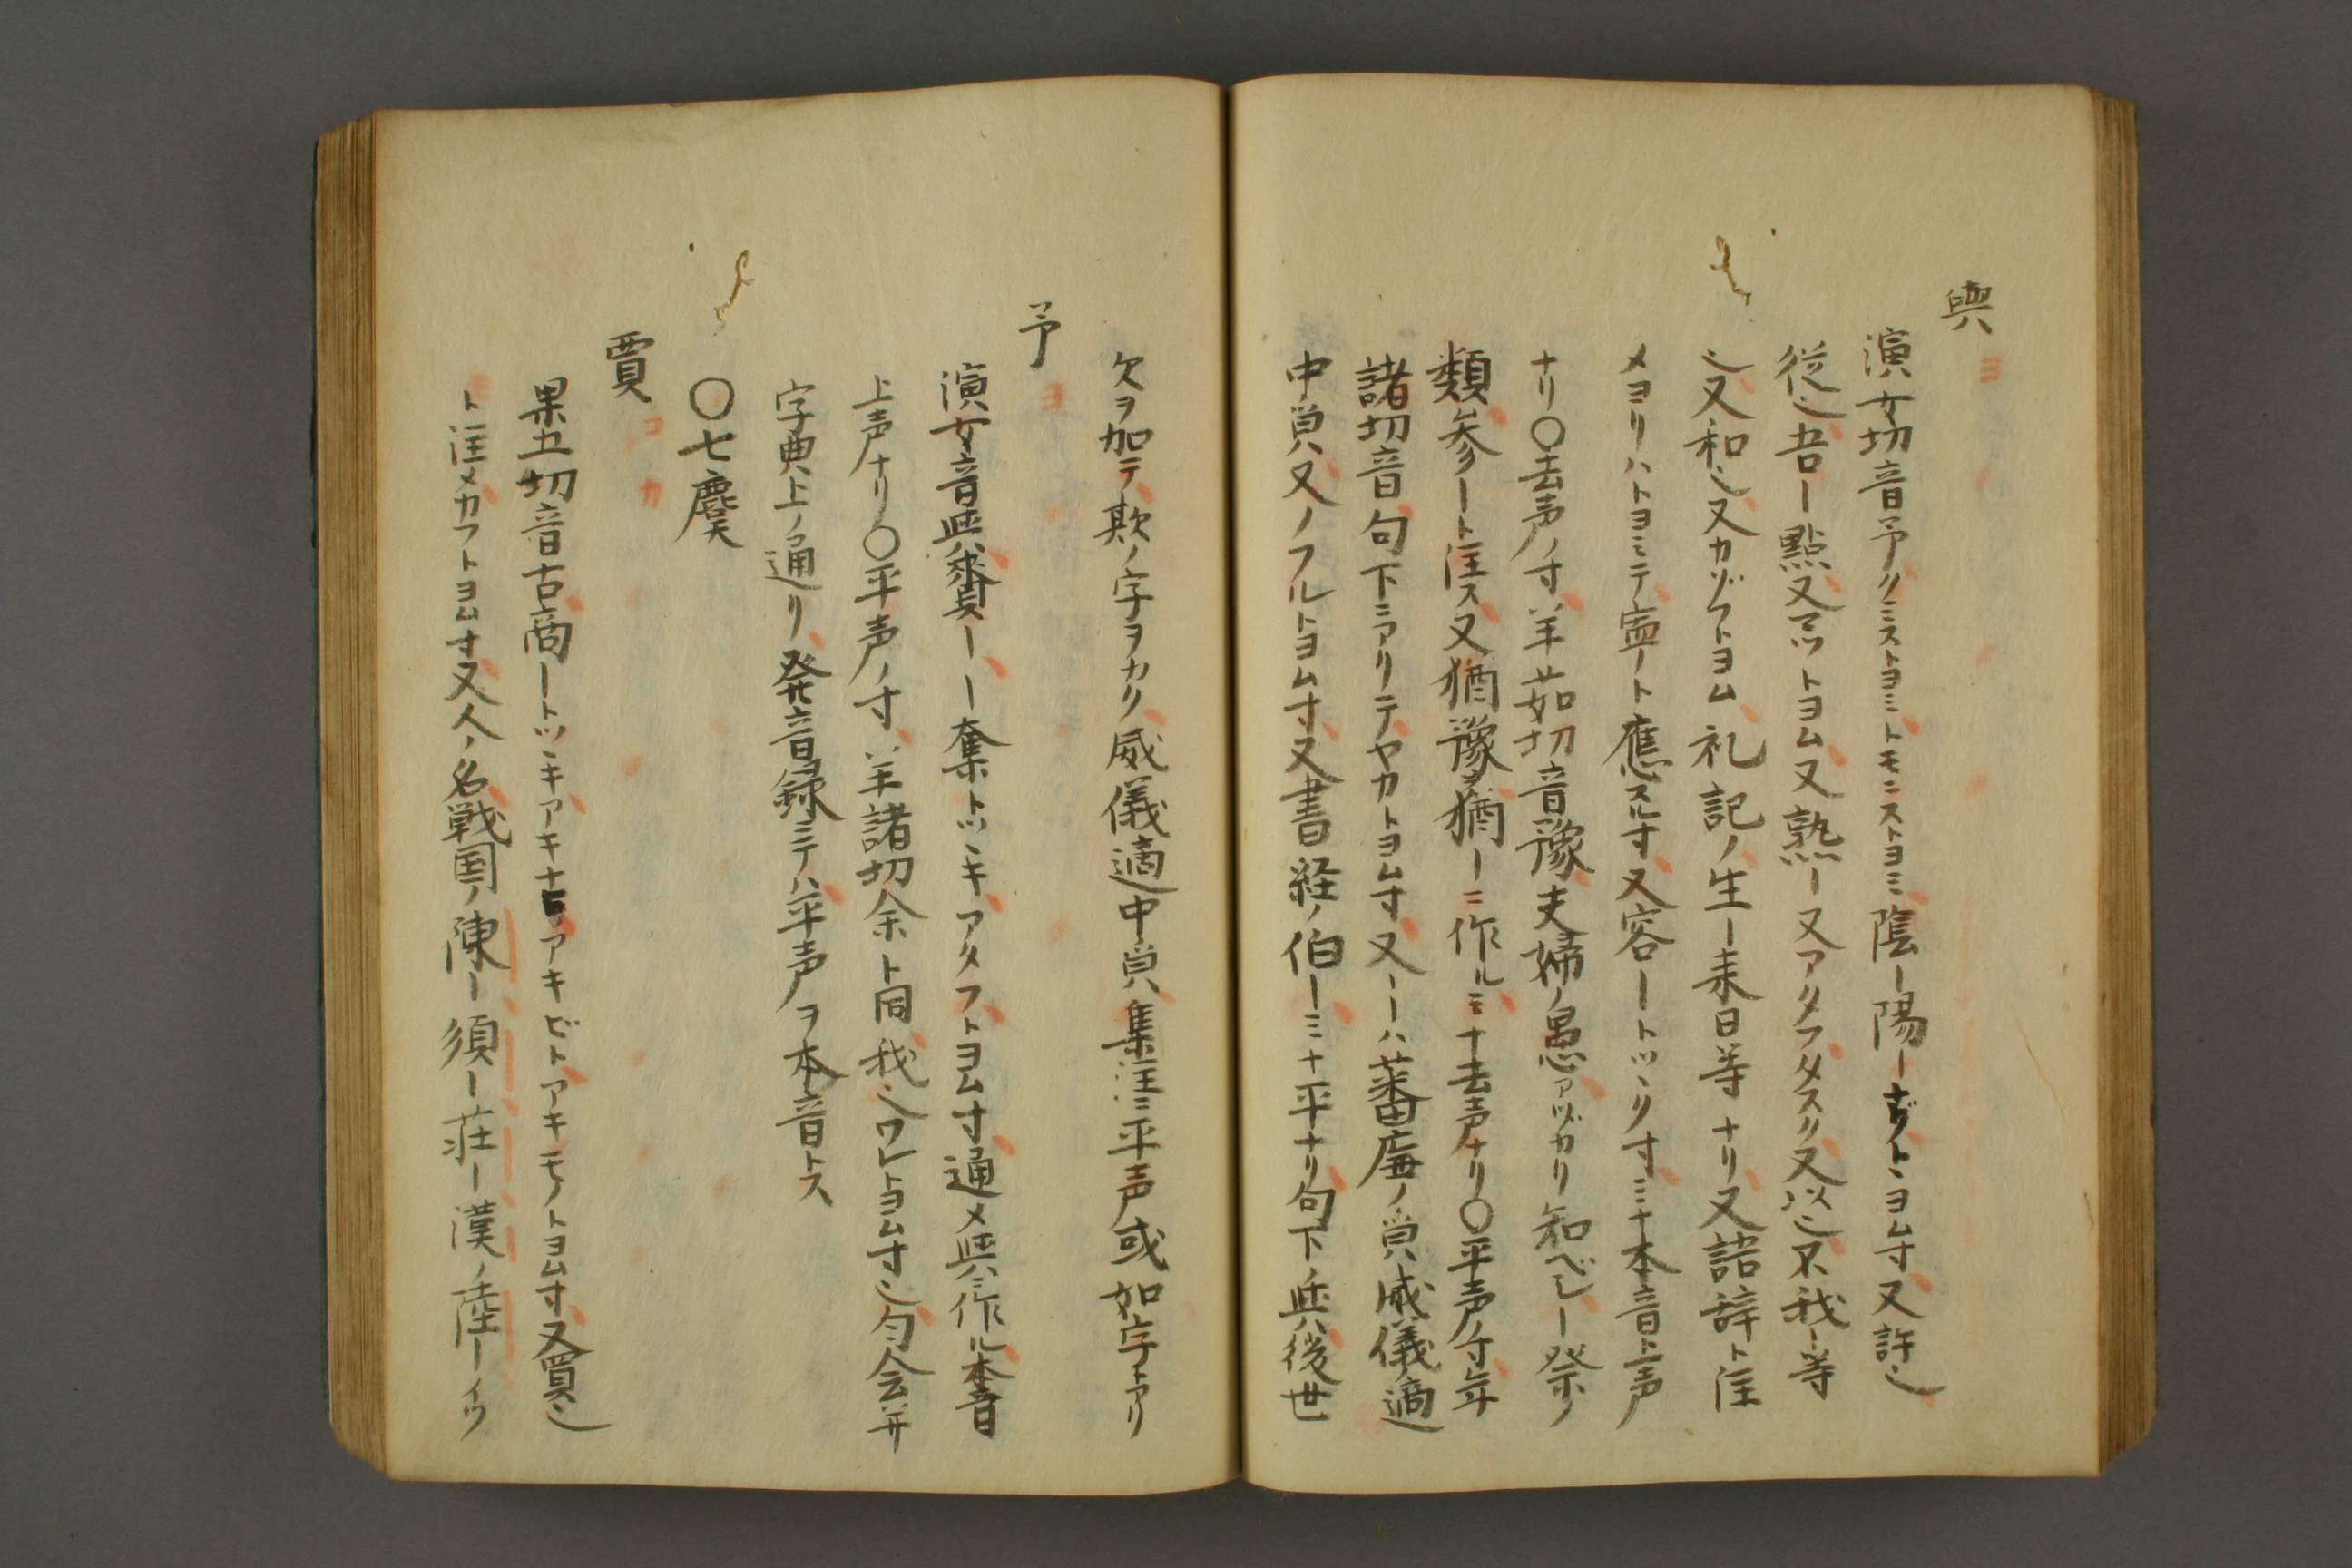 與 ヨ
演女切音予クミストヨミトモニストヨミ陰ー陽ートヨム寸又許也
従也吾ー點又マツトヨム又熟ー又アタフタスク又以也不我ー等
也又和也又カゾフトヨム礼記ノ生ー来日等ナリ又語辞ト注
メヨリハトヨミテ寧ート應スル寸又容ートツヾク寸ミナ本音上声
ナリ〇去声ノ寸羊茹切音豫夫婦ノ愚アヅカリ知ベシー祭ノ
類参ート注ス又猶豫ヲ猶ーニ作ルミナ去声ナリ〇平声ノ寸年
諸切音句下ニアリテヤカトヨム寸又ーーハ蕃廡ノ皃威儀適
中皃又ノフルトヨム寸又書経ノ伯ーミナ平ナリ句下ノ與後世
欠ヲ加テ歟ノ字ヲカク威儀適中皃集注ニ平声或如字トアリ
予 ヨ
演女音與賚ーー奪トツヾキアタフトヨム寸通メ與ニ作ル本音
上声ナリ〇平声ノ寸羊諸切余ト同我也ワレトヨム寸也匀会并
字典上ノ通リ発音録ニテハ平声ヲ本音トス
〇七麌
賈 コ カ
果五切音古商ートツヾキアキナヒアキビトアキモノトヨム寸又買也
ト注メカフトヨム寸又人ノ名戦国ノ陳ー須ー荘ー漢ノ陸ーイツ